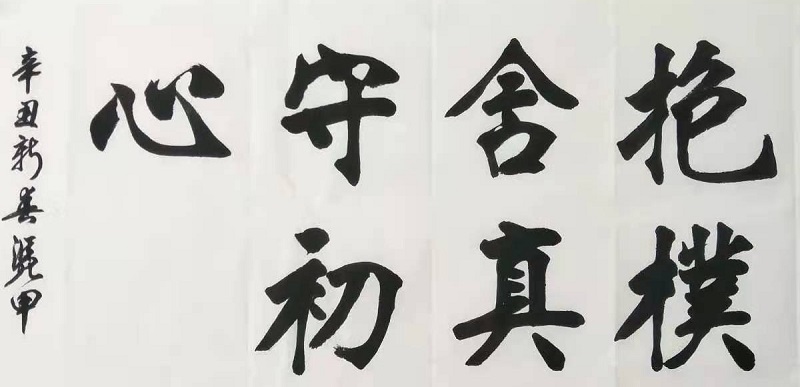 抱樸
含真
守初
心
辛丑新春甲